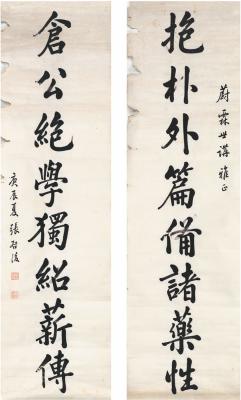 蔚霖世講雅正
抱朴外篇備諸藥性
倉公絕學獨紹薪傳
庚辰夏張啟後